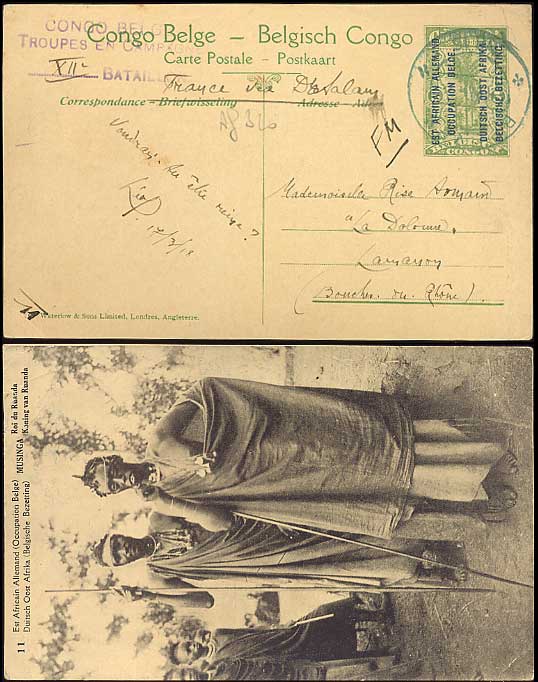 CONGO BELGE
TROUPES EN CAMPAGNE
XIIe BATAILL
Congo Belge — Belgisch Congo
Carte Postale - Postkaart
France via D'Salam
Correspondance — Briefwisseling
Adresse - Adres
EST AFRICAIN ALLEMAND
OCCUPATION BELGE.
DUITSCH OOST AFRIKA
BELGISCHE BEZETTING.
CONGO
FM
Voudrais-tu être reine?
Léo
17/3/18
Mademoiselle Rise
à La
Lamanon
(Bouches du Rhône).
Waterlow & Sons Limited, Londres, Angleterre.
11
Est Africain Allemand (Occupation Belge)
Duitsch Oost Afrika (Belgische Bezetting)
MUSINGA
Roi du Ruanda
Koning van Ruanda